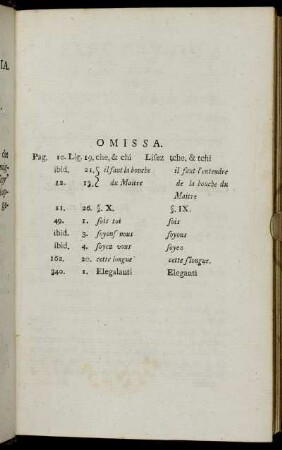 OMISSA.
Pag. 10. Lig. 19. che, & chi Lisez tche, & tchi
ibid. 21. { il faut la bouche il faut l'entendre
12. 13. { du Maitre de la bouche du
Maitre
11. 26. §. X. §. IX.
49. 1. sois toi sois
ibid. 3. soyons nous soyons
ibid. 4. soyez vous soyez
162. 20. cette longue cette slongue.
340. 1. Elegalanti Eleganti
IA.